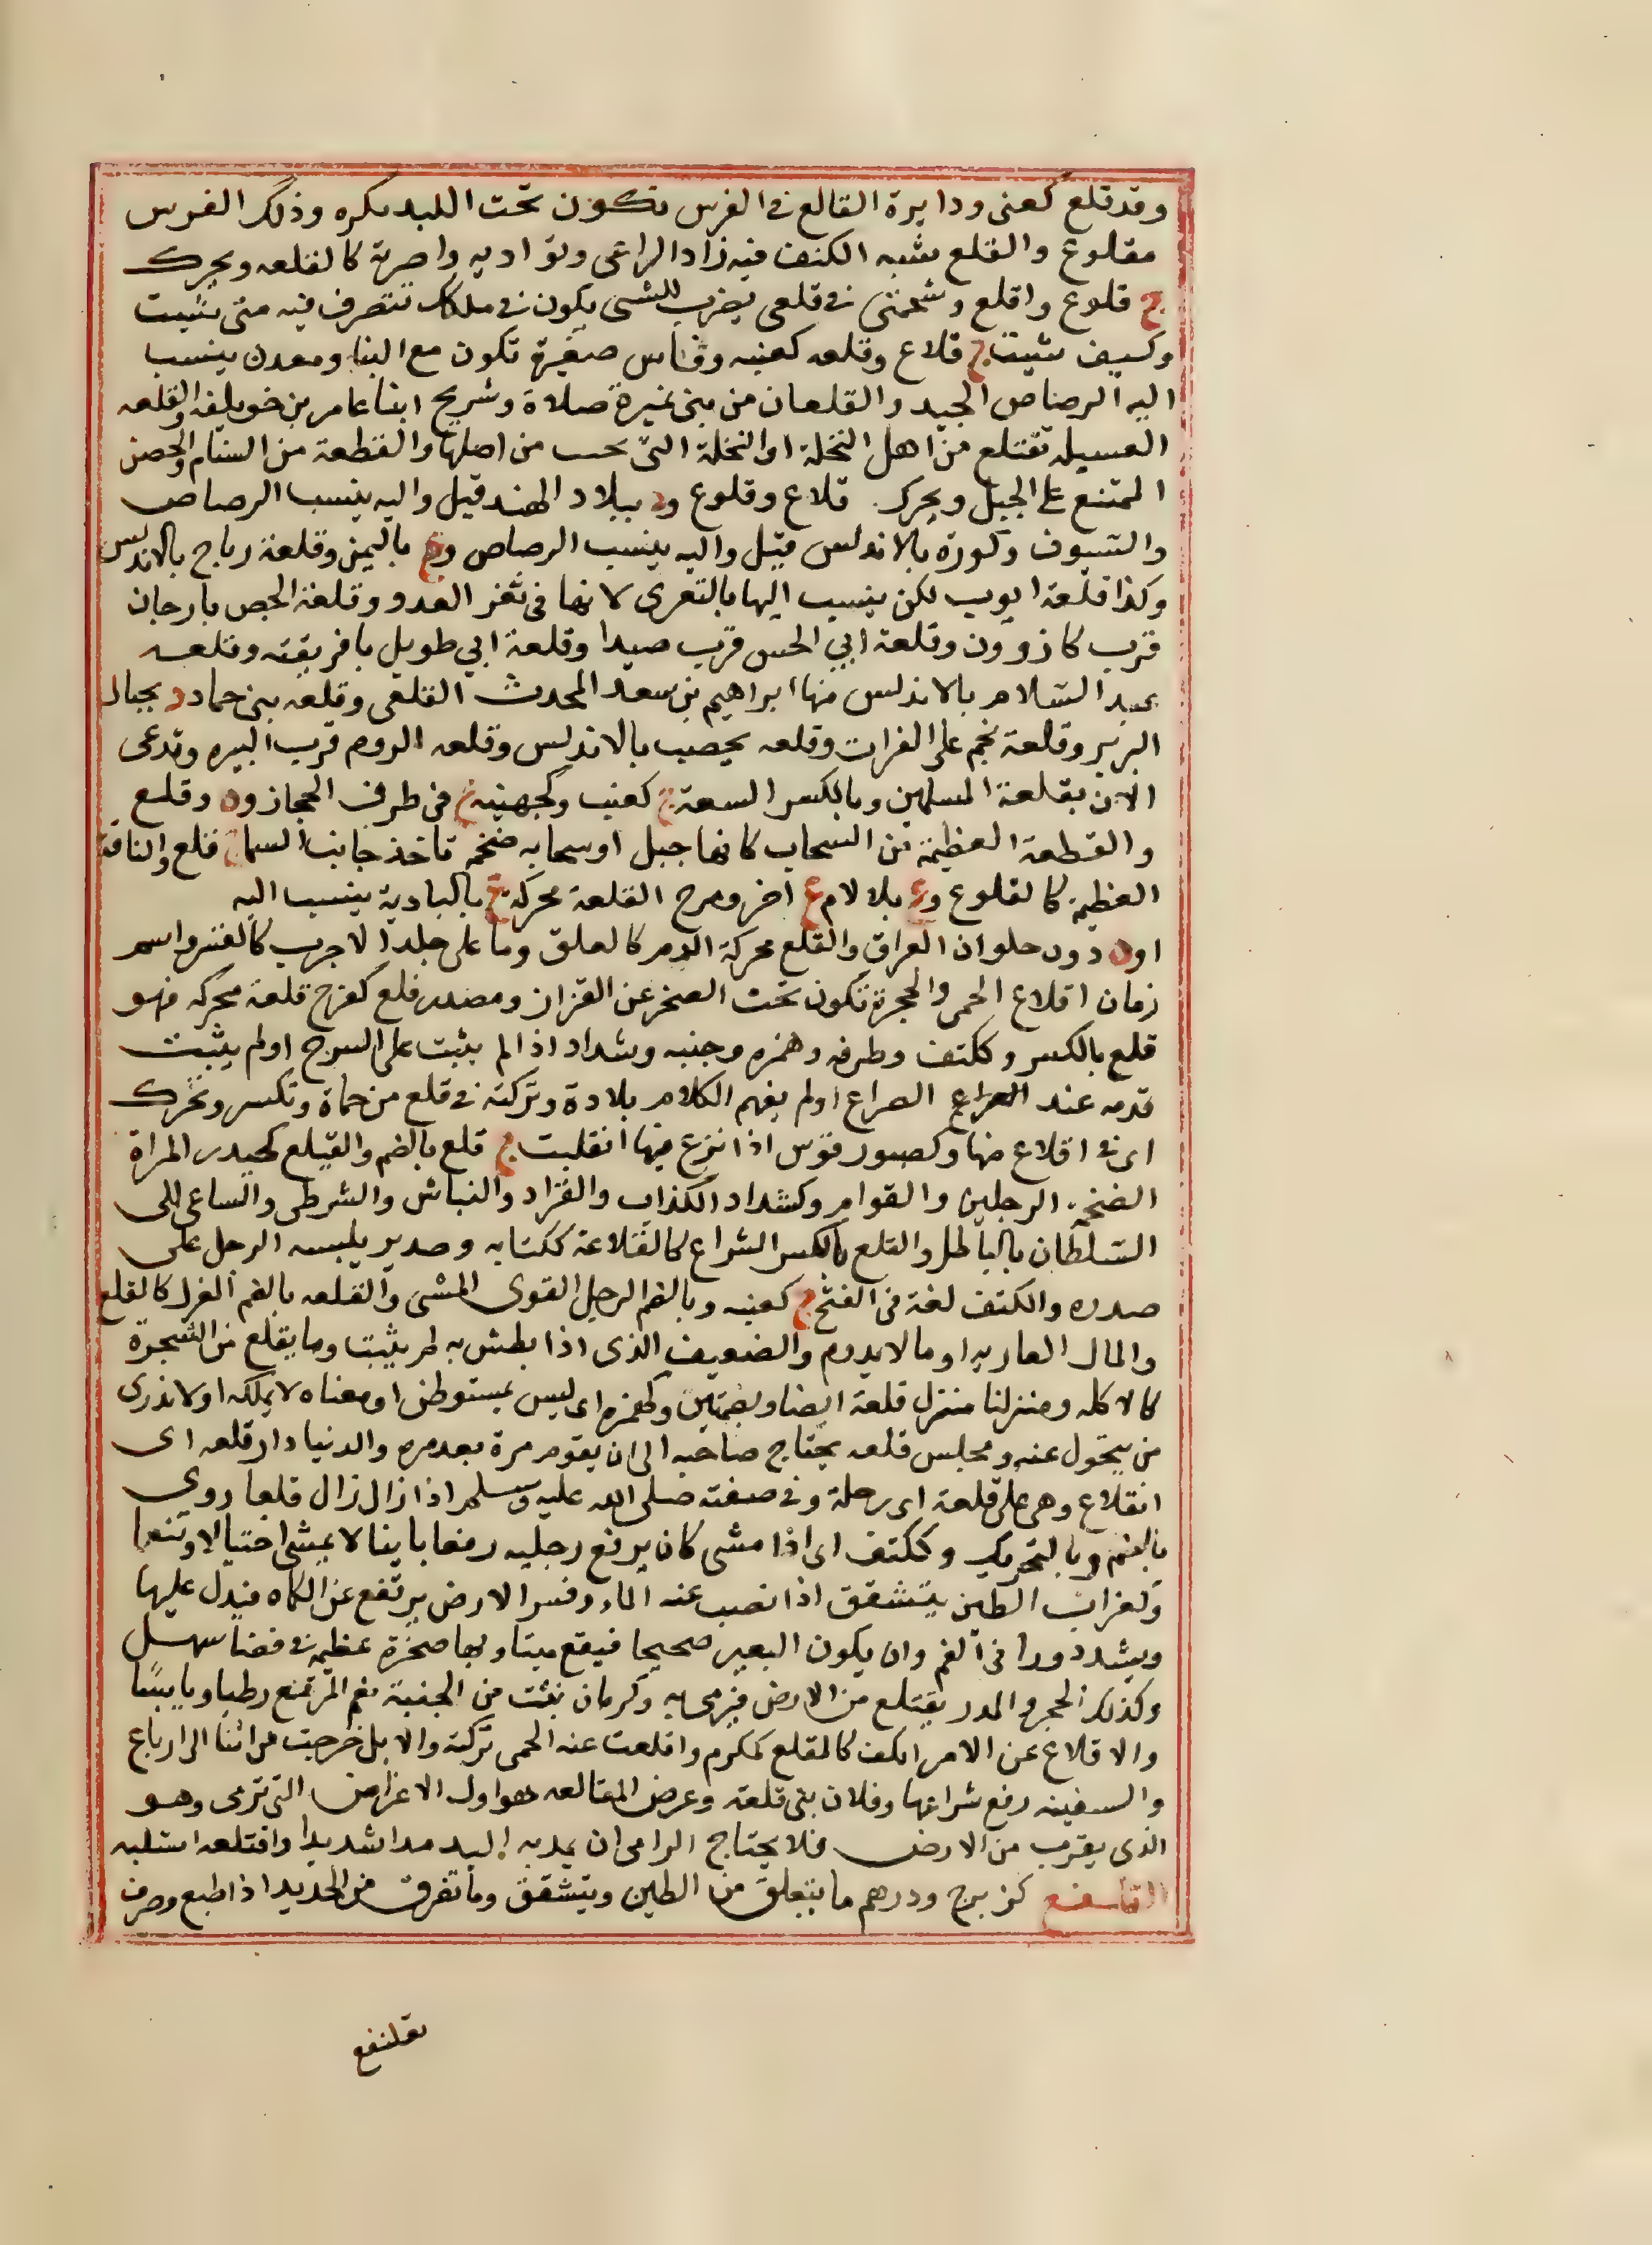 وقد قلع كعنى ودايرة القالع في الفرس تكون تحت اللبد يكره وذلك الفرس
مقلوع والقلع شبه الكنف فيه زاد الراعي وتواديه واصرته كالقلعه ويحرك
ج قلوع واقلع وشحمتى فى قلعى يضرب للشى يكون في ملكك تتصرف فيه متى شيت
وكيف شيت ج قلاع وقلعه كعنبه وفاس صغيرة تكون مع البنا ومعدن ينسب
اليه الرصاص الجيد والقلعان من بنى نميرة صلاة وشريح ابنا عامر بن خويلفه والقلعه
الفسيله تقتلع من اهل النخلة او النخلة التى من اصلها والقطعة من السنام والحصن
الممتنع على الجبل ويحرك قلاع وقلوع ود ببلاد الهند قيل واليه ينسب الرصاص
والسيوف وكورة بالاندلس قيل واليه ينسب الرصاص وع باليمن وقلعة رباح بالاندلس
وكذا قلعة ايوب لكن ينسب اليها بالتغرى لانها فى ثغر العدو وقلعة الجص بارجان
قرب كازرون وقلعة ابي الحسن قرب صيدا وقلعة ابي طويل بافريقيه وقلعه
عبد السلام بالاندلس منها ابراهيم بن سعد المحدث القلعى وقلعه بنى حماد د بجبال
البربر وقلعة نجم على الفرات وقلعه يحصب بالاندلس وقلعه الروم قرب البيره وتدعى
الان بقلعة المسلمين وبالكسر السعة ج كعنب وكجهينه ع فى طرف الحجاز وه وقلع
والقطعة العظيمة من السحاب كانها جبل او سحابه ضخمه تاخذ جانب السما ج قلع والناقة
العظيمة كالقلوع وع وبلا لام ع اخر ومرج القلعة محركة ع بالبادية ينسب اليه
او ه دون حلوان العراق والقلع محركة الدم كالعلق وما على جلد الاجرب كالقشر واسم
زمان اقلاع الحمى والحجرة تكون تحت الصخر عن القزاز ومصدر قلع كفرح قلعة محركه فهو
قلع بالكسر وككتف وطرفه وهمزه وجنبه وشداد اذا لم يثبت على السرج او لم يثبت
قدمه عند الصراع الصراع او لم يفهم الكلام بلادة وتركته في قلع من حماة وتكسر وتحرك
اى في اقلاع منها وكصبور قوس اذا نزع فيها انقلبت ج قلع بالضم والقيلع كحيدر المراة
الضخمه الرجلين والقوام وكشداد الكذاب والقواد والنباش والشرطى والساعي الى
السلطان بالباطل والقلع بالكسر الشراع كالقلاعة ككتابه وصدير يلبسه الرجل على
صدره والكتف لغة فى الفتح ج كعنبه وبالضم الرجل القوى المشى والقلعه بالضم العزل كالقلع
والمال العاريه او ما لا يدوم والضعيف الذى اذا بطش به لم يثبت وما يقلع من الشجرة
كالاكله ومنزلنا منزل قلعة ايضا وبضمتين وكهمزه اى ليس بمستوطن او معناه لا يملكه او لا ندرى
من يتحول عنه ومجلس قلعه يحتاج صاحبه الى ان يقوم مرة بعد مره والدنيا دار قلعه اى
انقلاع وهى على قلعة اى رحلة وفي صفته صلى الله عليه وسلم اذا زال زال قلعا روى
بالضم وبالتحريك وككتف اى اذا مشى كان يرفع رجليه رفعا باينا لا يمشى اختيالا وتنعما
وكغراب الطين يتشقق اذا نصب عنه الماء وقشر الارض يرتفع عن الكماه فيدل عليها
ويشدد ودا فى الفم وان يكون البعير صحيحا فيقع ميتا وبها صخرة عظيمه في فضا سهل
وكذلك الحجر والمدر يقتلع من الارض فيرمى به وكرمان نبت من الجنبة نعم المرتع رطبا ويابسا
والاقلاع عن الامر الكف كالمقلع كمكرم واقلعت عنه الحمى تركته والابل خرجت من اثنا الى ارباع
والسفينه رفع شراعها وفلان بنى قلعة وعرض المقالعه هو اول الاغراض التى ترمى وهو
الذى يقرب من الارض فلا يحتاج الرامى ان يمد به اليد مدا شديدا واقتلعه استلبه
القلفع كزبرج ودرهم ما يتعلق من الطين ويتشقق وما تفرق من الحديد اذا طبع وصرف
تقلفع